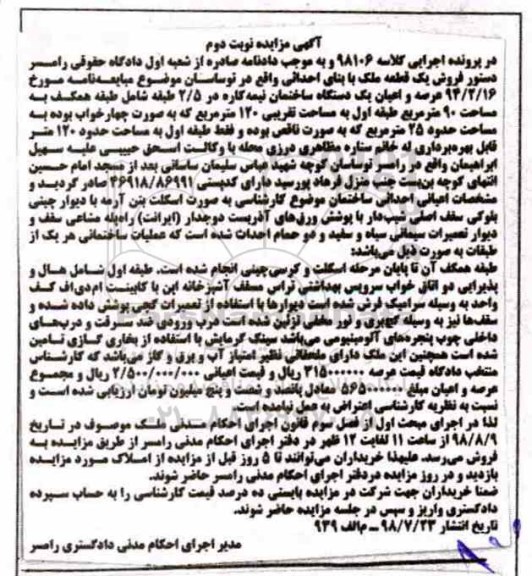 آگهی مزایده نوبت دوم
در پرونده اجرایی کلاسه ۹۸۱۰۶ و به موجب دادنامه صادره از شعبه اول دادگاه حقوقی رامسر
دستور فروش یک قطعه ملک با بنای احداثی واقع در توساسان موضوع مبایعه‌نامه مورخ
۹۴/۲/۱۶ عرصه و اعیان یک دستگاه ساختمان نیمه‌کاره در ۲/۵ طبقه شامل طبقه همکف به
مساحت ۹۰ مترمربع طبقه اول به مساحت تقریبی ۱۲۰ مترمربع که به صورت چهارخواب بوده به
مساحت حدود ۲۵ مترمربع که به صورت ناقص بوده و فقط طبقه اول به مساحت حدود ۱۲۰ متر
قابل بهره‌برداری له خانم ستاره مظاهری درزی محله با وکالت اسحق حبیبی علیه سهیل
ابراهیمان واقع در رامسر توساسان کوچه شهید عباس سلیمان ساسانی بعد از مسجد امام حسین
انتهای کوچه بن‌بست جنب منزل فرهاد پورسید دارای کدپستی ۴۶۹۱۸/۸۶۹۹۱ صادر گردید و
مشخصات اعیانی احداثی ساختمان موضوع کارشناسی به صورت اسکلت بتن آرمه با دیوار چینی
بلوکی سقف اصلی شیب‌دار با پوشش ورق‌های آذرپست دوجدار (ایرانت) راه‌پله مشاعی سقف و
دیوار تعمیرات سیمانی سیاه و سفید و دو حمام احداث شده است که عملیات ساختمانی هر یک از
طبقات به صورت ذیل می‌باشد:
طبقه همکف آن تا پایان مرحله اسکلت و کرسی‌چینی انجام شده است. طبقه اول شامل هال و
پذیرایی دو اتاق خواب سرویس بهداشتی تراس مسقف آشپزخانه اپن با کابینت ام‌دی‌اف کف
واحد به وسیله سرامیک فرش شده است دیوارها با استفاده از تعمیرات گچی پوشش داده شده و
سقف‌ها نیز به وسیله گچ‌بری و نور مخفی تزئین شده است درب ورودی ضد سرقت و درب‌های
داخلی چوب پنجره‌های آلومینیومی می‌باشد سینک گرمایش با استفاده از بخاری گازی تامین
شده است همچنین این ملک دارای ملحقاتی نظیر امتیاز آب و برق و گاز می‌باشد که کارشناس
منتخب دادگاه قیمت عرصه ۳۱۵۰۰۰۰۰۰۰ ریال و قیمت اعیانی ۲/۵۰۰/۰۰۰/۰۰۰ ریال و مجموع
عرصه و اعیان مبلغ معادل پانصد و شصت و پنج میلیون تومان ارزیابی شده است و
نسبت به نظریه کارشناسی اعتراض به عمل نیامده است.
لذا در اجرای مبحث اول از فصل سوم قانون اجرای احکام مدنی ملک موصوف در تاریخ
۹۸/۸/۹ از ساعت ۱۱ لغایت ۱۲ ظهر در دفتر اجرای احکام مدنی رامسر از طریق مزایده به
فروش می‌رسد. علیهذا خریداران می‌توانند تا ۵ روز قبل از مزایده از املاک مورد مزایده
بازدید و در روز مزایده دردفتر اجرای احکام مدنی رامسر حاضر شوند.
ضمنا خریداران جهت شرکت در مزایده بایستی ده درصد قیمت کارشناسی را به حساب سپرده
دادگستری واریز و سپس در جلسه مزایده حاضر شوند.
تاریخ انتشار ۹۸/۷/۲۳ – م‌الف ۹۳۹
مدیر اجرای احکام مدنی دادگستری رامسر